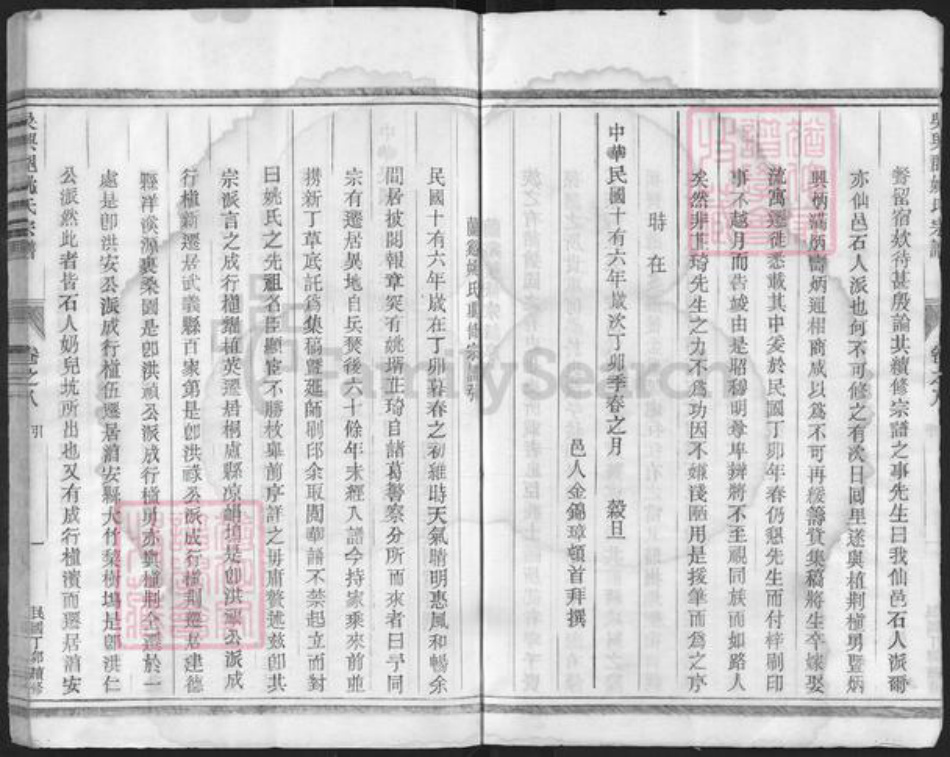 督留宿欵待甚殷論其續修宗譜之事先生曰我仙邑石人派爾
亦仙邑石人派也何不可修之有次日囘里遂與植荆植勇曁炳
興炳瀛炳嵩炳通相商咸以爲不可再緩籌貲集稿將生卒嫁娶
流寓遷徙悉載其中爰於民國丁卯年春仍懇先生而付梓刷印
事不越月而告竣由是昭穆明尊卑辨將不至覗同族而如路人
矣然非玉琦先生之力不爲功因不嫌譾陋用是援筆而爲之序
時在
中華民國十有六年歲次丁卯季春之月 穀旦
邑人金錦章頓首拜撰
蘭谿姚氏重修宗譜引
民國十有六年歲在丁卯暮春之初維時天氣晴明惠風和暢余
閒居披閱報章突有姚壻玉琦自諸葛警察分所而來者曰予同
宗有遷居異地自兵燹後六十餘年未經入譜今持家乘來前並
携新丁草底託爲集稿曁延師刷印余取閱華譜不禁起立而對
曰姚氏之先祖名臣顯宦不勝枚舉前序詳之毋庸贅述兹卽其
宗派言之成行植 植英遷居桐盧縣 是卽洪 公派成
行植新遷居武義縣百家第是卽洪祿公派成行植荆遷居建德
縣洋溪源裏桑園是卽洪禎公派成行植勇亦與植荆仝遷於一
處是卽洪安公派成行植伍遷居淯安縣大竹梨樹塢是卽洪仁
公派然此者皆石人奶兒坑所出也又有成行植濱而遷居淯安
吳興郡姚氏宗譜
卷之八 引
一
民國丁卯續修